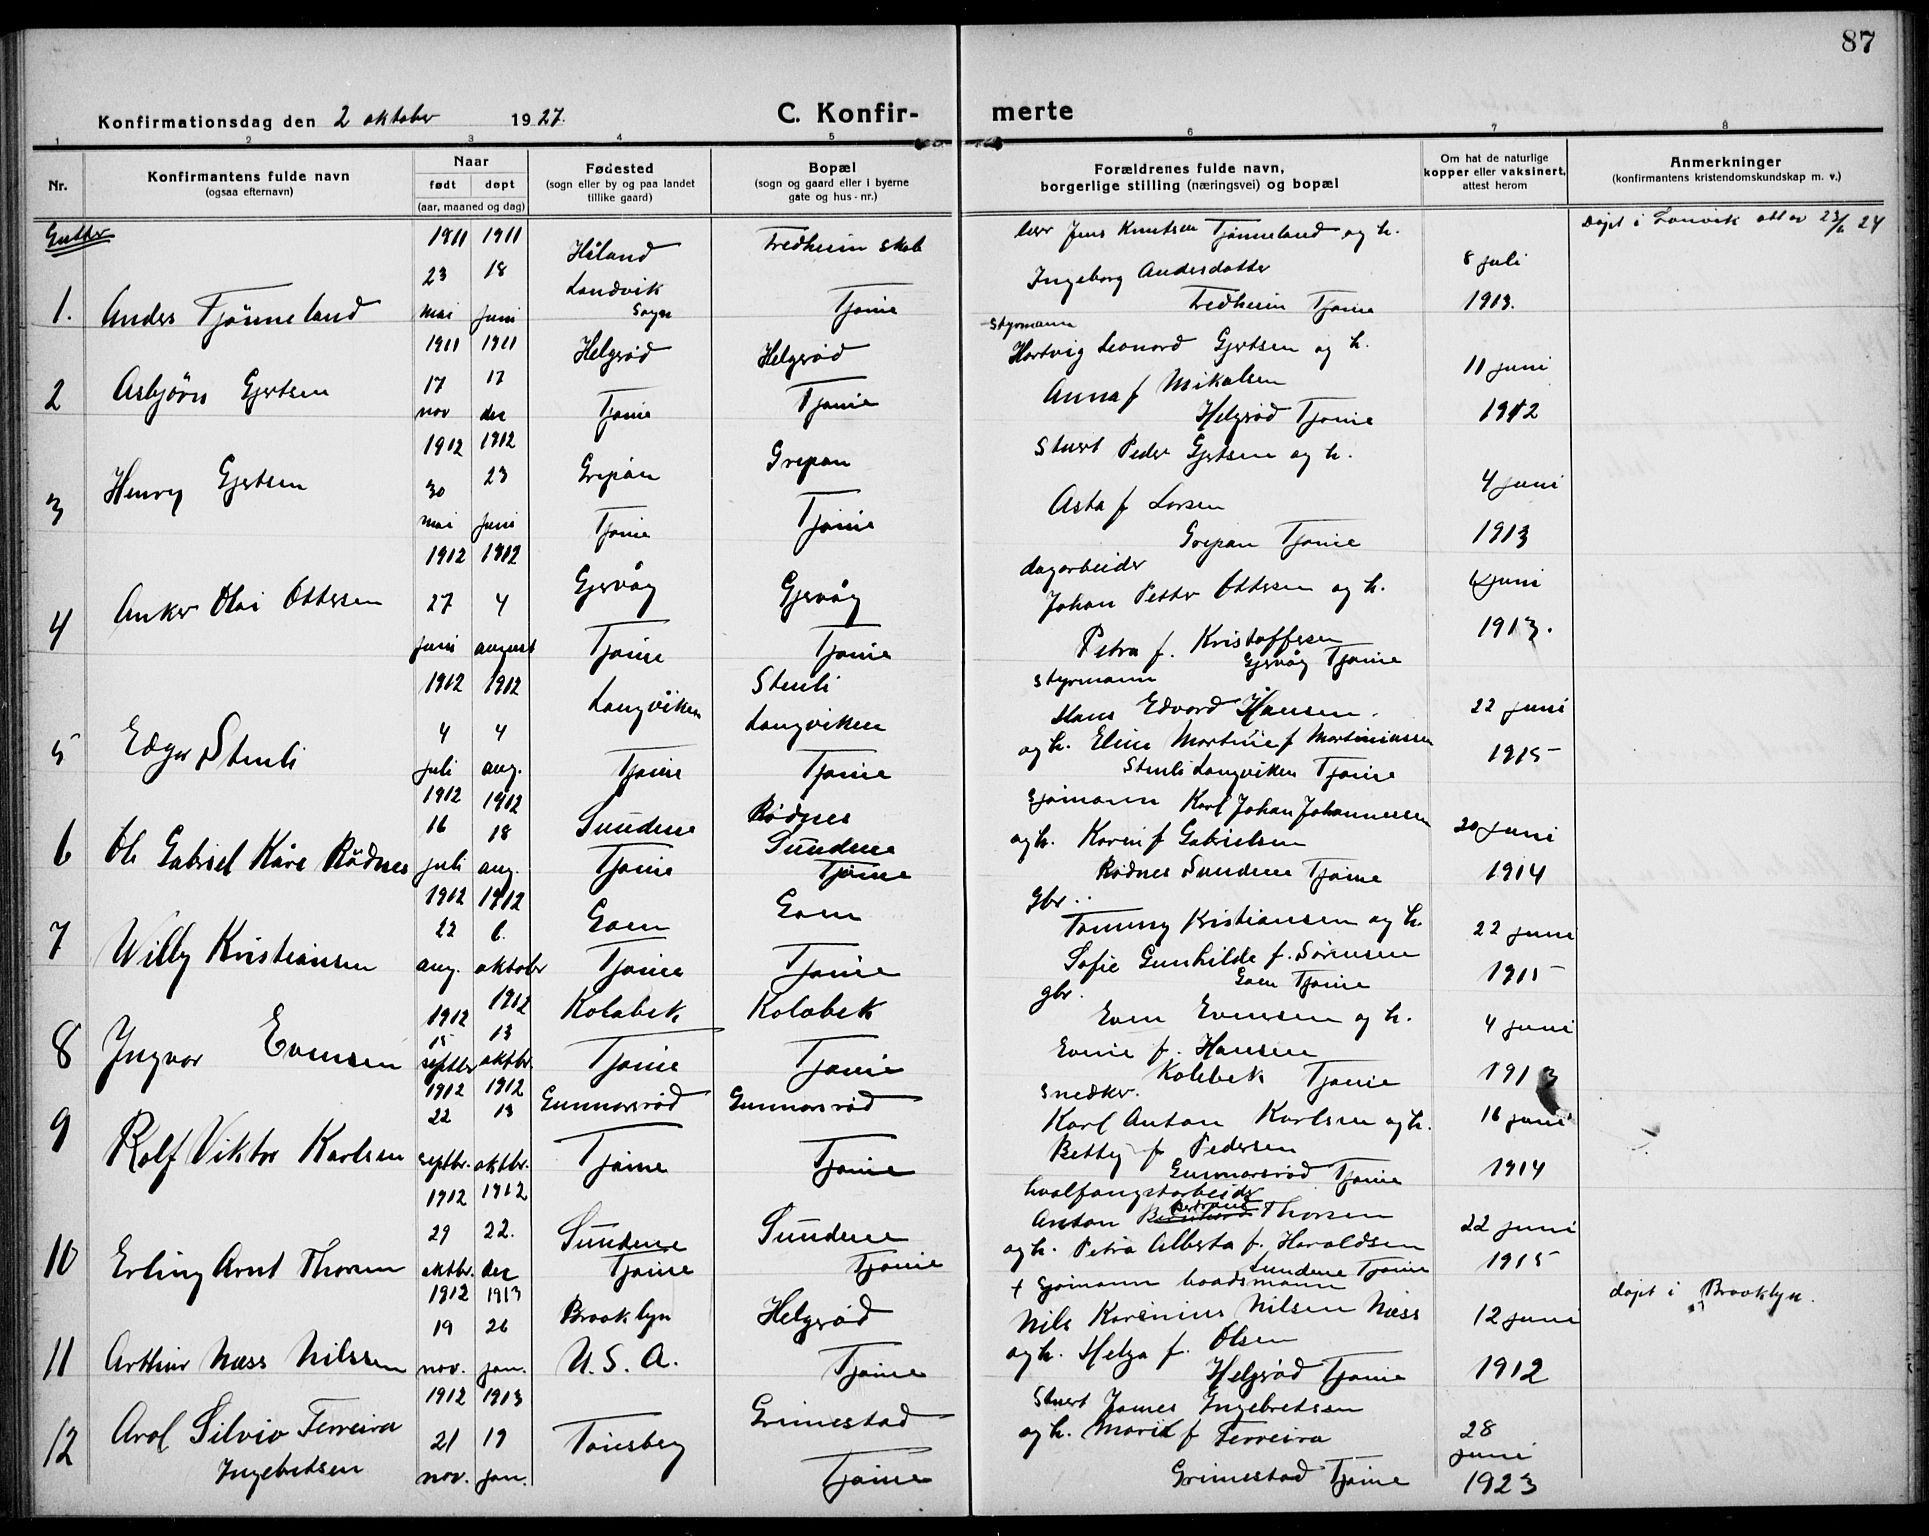 87
Konfirmationsdag den 2 oktober 1927.
C. Konfir- merte
1 2 3 4 5 6 7 8
Nr.
Konfirmantens fulde navn
(ogsaa efternavn)
Naar
født døpt
(aar, maaned og dag)
Fødested
(sogn eller by og paa landet
tillike gaard)
Bopæl
(sogn og gaard eller i byerne
gate og hus-nr.)
Forældrenes fulde navn,
borgerlige stilling (næringsvei) og bopæl
Om hat de naturlige
kopper eller vaksinert,
attest herom
Anmerkninger
(konfirmantens kristendomskundskap m. v.)
Gutter
1. Anders Tjönneland
1911 23 mai
1911 18 juni
Håland
Landvik
Sogn
Fredheim skole
Tjøme
lærer Jens Knutsen Tjønneland og h.
Ingeborg Andersdatter
Fredheim Tjøme
8 juli
1913.
Døpt i Lanvik att av 23/6 24
2 Asbjörn Gjertsen
1911 17 nov
1911 17 des
Helgerød
Tjøme
Helgerød
Tjøme
Styrmann
Hartvig Leonard Gjertsen og h.
Anna f Mikalsen
Helgerød Tjøme
11 juni
1912
3 Henry Gjertsen
1912 30 mai
1912 23 juni
Grepan
Tjøme
Grepan
Tjøme
Stuert Peder Gjertsen og h.
Asta f Larsen
Grepan Tjøme
4 juni
1913
4 Anker Olai Ottersen
1912 27 juni
1912 4 august
Gjervåg
Tjøme
Gjervåg
Tjøme
dagarbeider
Johan Petter Ottersen og h.
Petra f. Kristoffersen
Gjervåg Tjøme
juni
1913.
5 Edgar Stenli
1912 4 juli
1912 4 aug.
Langviken
Tjøme
Stenli
Langviken
Tjøme
Styrmann
Hans Edvard Hansen.
og h. Eline Martine f Martiniussen
Stenli Langviken Tjøme
22 juni
1915
6 Ole Gabriel Kåre Rødnes
1912 16 juli
1912 18 aug.
Sundene
Tjøme
Rødnes
Sundene
Tjøme
Sjømann Karl Johan Johannessen
og h. Karen f Gabrielsen
Rødnes Sundene Tjøme
20 juni
1914
7 Willy Kristiansen
1912 22 aug.
1912 6. oktober
Goen
Tjøme
Goen
Tjøme
gbr.
Tommy Kristiansen og h.
Sofie Gunhilde f. Sørensen
Goen Tjøme
22 juni
1915
8 Ingvar Evensen
1912 15 septbr
1912 13 oktbr.
Kolabek
Tjøme
Kolabek
Tjøme
gbr.
Even Evensen og h.
Evine f. Hansen
Kolabek Tjøme
4 juni
1913
9 Rolf Viktor Karlsen
1912 22 septbr.
1912 13 oktbr.
Gunnarsrød
Tjøme
Gunnarsrød
Tjøme
Snedker.
Karl Anton Karlsen og h.
Betty f Pedersen
Gunnarsrød Tjøme
16 juni
1914
10 Erling Arnt Thorsen
1912 29 oktbr.
1912 22. des
Sundene
Tjøme
Sundene
Tjøme
hvalfangstarbeider
Anton Thorsen
og h. Petra Alberta f. Haraldsen
Sundene Tjøme
22 juni
1915
11 Arthur Næss Nilssen
1912 19 nov.
1913 26 jan.
Brooklyn
U.S.A.
Helgerød
Tjøme
+ Sjømann baadsmann
Nils Karenius Nilsen Næss
og h. Helga f. Olsen
Helgerød Tjøme
12 juni
1912
døpt i Brooklyn.
12 Arol Silvio Ferreira
Ingebretsen
1912 21 nov.
1913 19 jan.
Tønsberg
Grimestad
Tjøme
Stuert James Ingebretsen
og h. Marie f Ferreira
Grimestad Tjøme
28
juni
1923